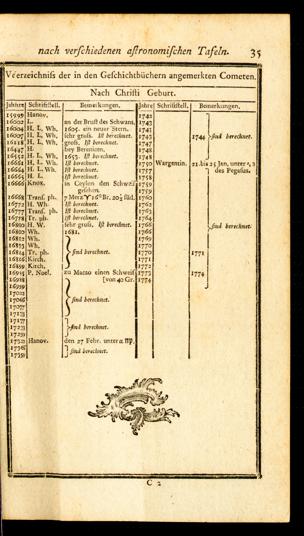 nach verschiedenen astronomischen Tafeln. 35
Verzeichniſs der in den Geschichtbüchern angemerkten Cometen.
Nach Christi Geburt.
Jahre Schriftstell. Bemerkungen. Jahre Schriftstell. Bemerkungen.
Hanov. 1742
L. an der Brust des Schwans. 1743
H. L, Wh. 1605. ein neuer Stern. 1744
H. L, Wh. sehr gross. Ist berechnet. 1744 sind berechnet.
H. L, Wh. gross. Ist berechnet. 1747
H. bey Berenicen. 1748
H. L, Wh. 1653. Ist berechnet.
H. L, Wh. Ist berechnet. 1750 Wargentin. 21 bis 25 Jan. unter
H. L, Wh. Ist berechnet. 1757 des Pegasus.
H. L. Ist berechnet. 1758
Knox. in Ceylen den Schweif 1759
gesehen.
1668 Trans. ph. 7 Merz 1760
1672 H. Wh. Ist berechnet. 1762
1677 Trans. ph. Ist berechnet. 1763
1678 Tr. ph. Ist berechnet. 1764
1680 H. W. sehr gross. Ist berechnet. 1766 sind berechnet.
Wh. 1681. 1766
1682 Wh. 1769
1683 Wh. 1770
1684 Tr. ph. sind berechnet. 1771 1771
Kirch. 1770
1689 Kirch. 1772
P. Noel. zu Macao einen Schweif 1773 1774
1698 [von 40 Gr. 1774
1699
1702
1706 sind berechnet.
1707
1718
1723 sind berechnet.
1729
Hanov. den 27 Febr. unter α ♍.
sind berechnet.
1739
C 2